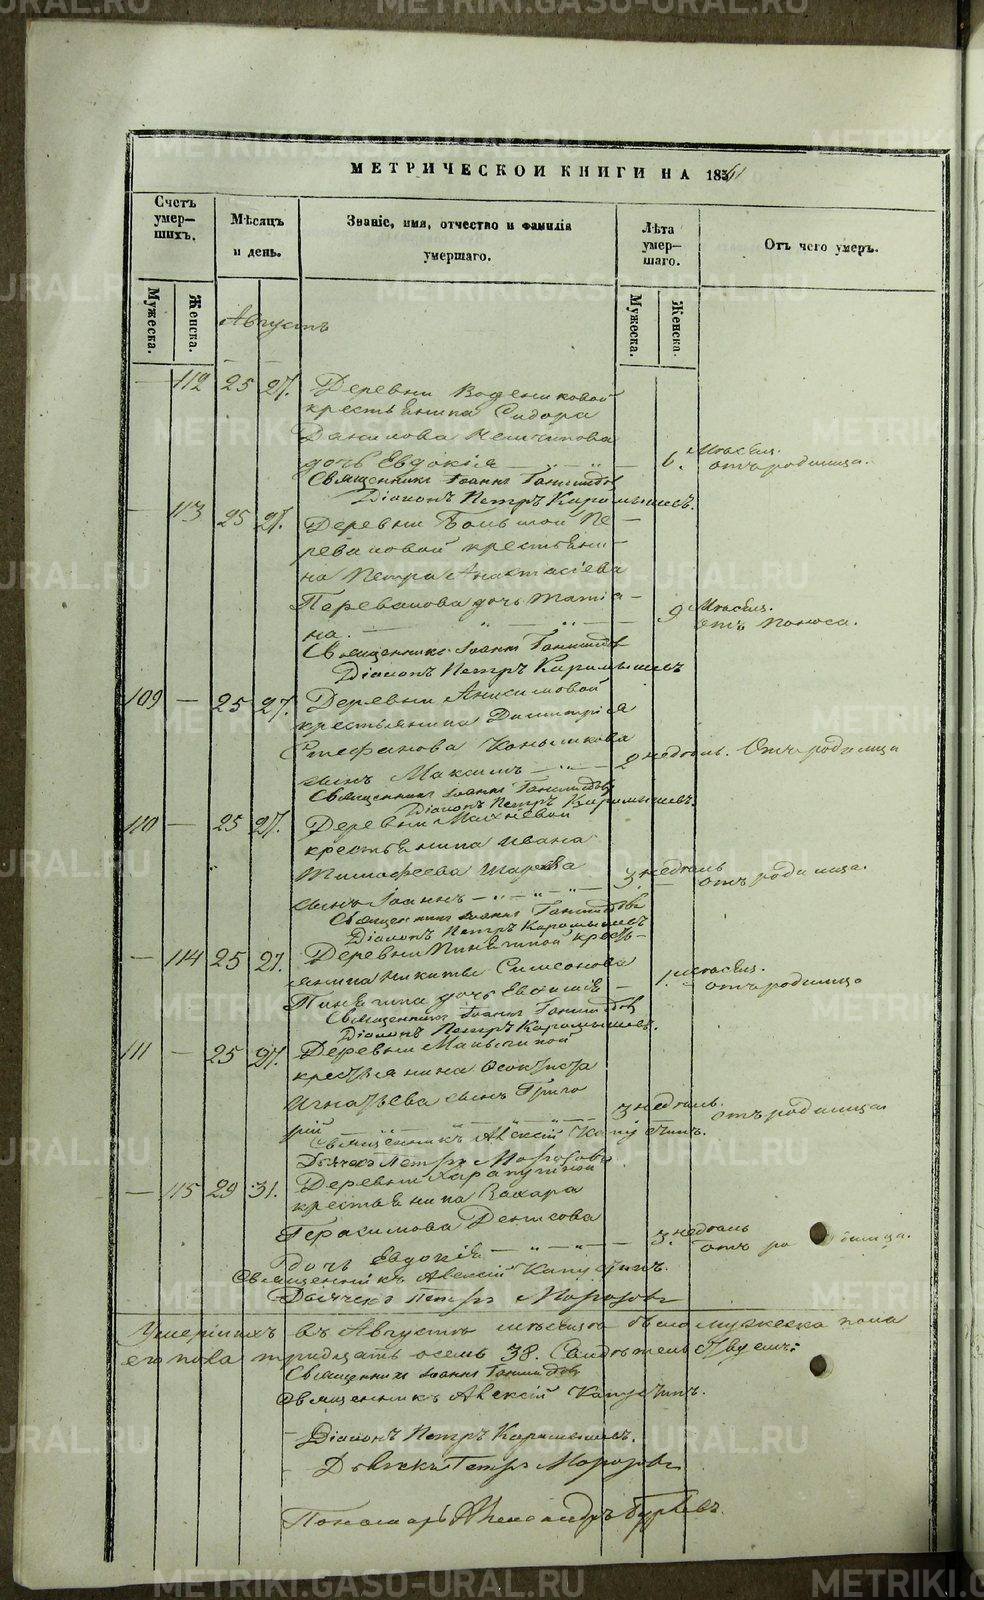 МЕТРИЧЕСКОЙ КНИГИ НА 1861
Счетъ умер-
шихъ.
Мѣсяцъ
и день.
Званіе, имя, отчество и фамилія
умершаго.
Лѣта
умер-
шаго.
Отъ чего умеръ.
Мужеска.
Женска.
Мужеска.
Женска.
Августъ
— 112 25 27. Деревни
крестьянина Сидора
Данилова
дочь Евдокія 6. Мѣсяц. отъ родимца.
Священникъ Іоаннъ
Діаконъ Петръ Карамышевъ.
— 113 25 27. Деревни Большой Пе-
реваловой крестьяни-
на Петра Анастасіева
Перевалова дочь Татіа-
на. 9 Мѣсяц. отъ поноса.
Священникъ Іоаннъ
Діаконъ Петръ Карамышевъ
109 — 25 27. Деревни Анисимовой
крестьянина Димитрія
Стефанова Конышкова
сынъ Максимъ 2 недѣль. Отъ родимца
Священникъ Іоаннъ
Діаконъ Петръ Карамышевъ.
110 — 25 27. Деревни Махнёвой
крестьянина Ивана
Тимофеева
сынъ Іоаннъ 3 недѣль отъ родимца.
Священникъ Іоаннъ
Діаконъ Петръ Карамышевъ
— 114 25 27. Деревни Пинягиной кресть-
янина Никиты Симеонова
Пинягина дочь 1. мѣсяц. отъ родимца
Священникъ Іоаннъ
Діаконъ Петръ Карамышевъ.
111 — 25 27. Деревни
крестьянина Ѳеоктиста
Игнатьева сынъ Григо
рій 3 недѣль. отъ родимца
Священникъ Алексій Капустинъ.
Дьячекъ Петръ Морозовъ
— 115 29 31. Деревни
крестьянина Захара
Герасимова Денисова
дочь Евдокія 3. недѣль отъ родимца.
Священникъ Алексій Капустинъ.
Дьячекъ Петръ Морозовъ
Умершихъ въ Августѣ мѣсяцѣ было мужеска пола
его пола тридцать осемь 38.
Священникъ Іоаннъ
Священникъ Алексій Капустинъ.
Діаконъ Петръ Карамышевъ.
Дьячекъ Петръ Морозовъ
Пономарь Александръ
METRIKI.GASO-URAL.RU